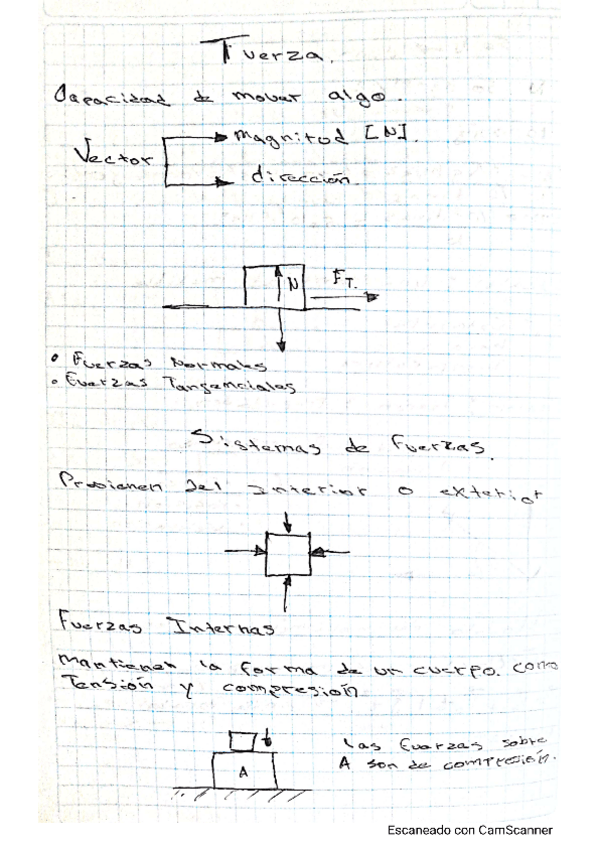 Fuerza.
Capacidad de mover algo.
Vector
magnitod [N].
dirección
N
FT.
• Fuerzas Normales
• Fuerzas Tangenciales
Sistemas de Fuerzas.
Provienen del interior o exterior
Fuerzas Internas
Mantienen la forma de un cuerpo. como
Tensión y compresión
A
las fuerzas sobre
A son de compresión.
Escaneado con CamScanner